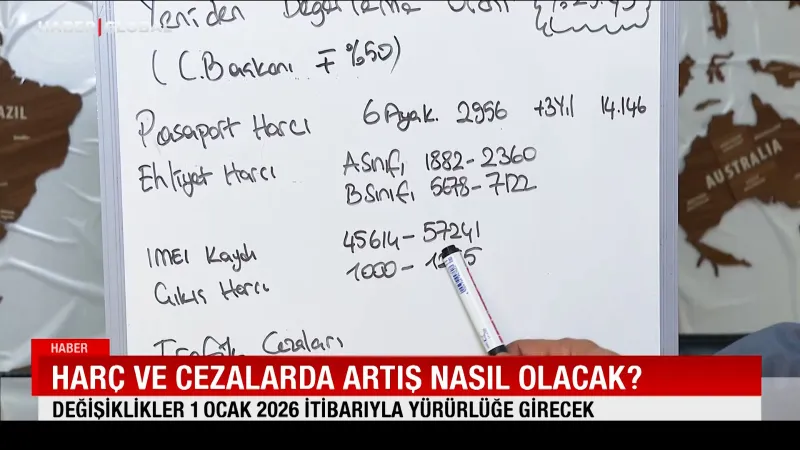 HABER GLOBAL
Yeniden Değerleme Oranı
(C.Başkanı ∓ %50)
Pasaport Harcı 6 Ayak. 2956 +3Yıl 14.146
Ehliyet Harcı A Sınıfı 1882-2360
B Sınıfı 5678-7122
IMEI Kaydı 45614-57241
Çıkış Harcı 1000-
Trafik Cezaları
AZIL
AUSTRALIA
HABER
HARÇ VE CEZALARDA ARTIŞ NASIL OLACAK?
DEĞİŞİKLİKLER 1 OCAK 2026 İTİBARIYLA YÜRÜRLÜĞE GİRECEK